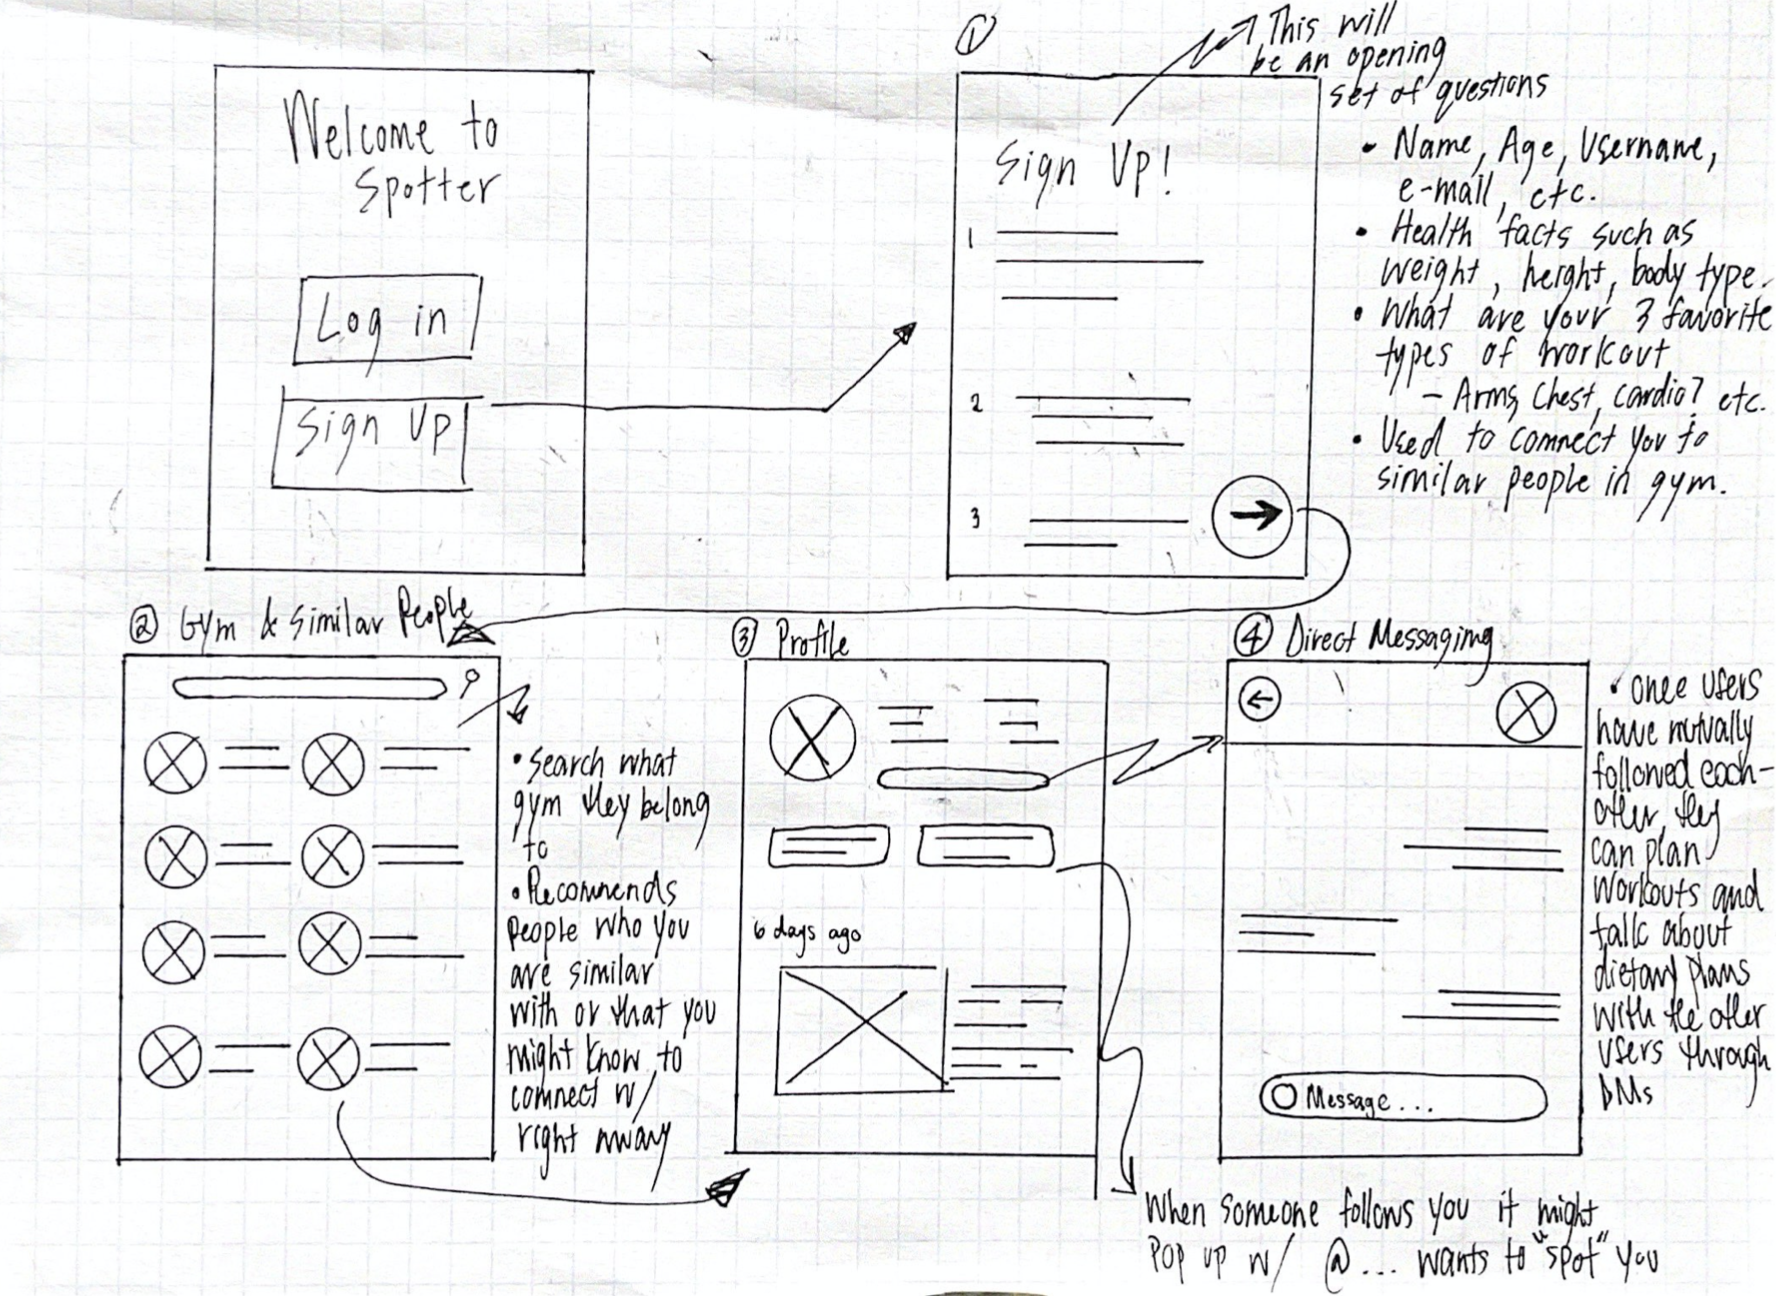 Welcome to
Spotter
Log in
Sign Up
①
This will
be an opening
set of questions
Sign Up!
1
2
3
• Name, Age, Username,
e-mail, etc.
• Health facts such as
weight, height, body type.
• What are your 3 favorite
types of workout
- Arms, Chest, cardio? etc.
• Used to connect you to
similar people in gym.
② Gym & Similar People
• Search what
gym they belong
to
• Recommends
People who you
are similar
with or that you
might know to
connect w/
right away
③ Profile
6 days ago
When someone follows you it might
Pop up w/ @... wants to "spot" you
④ Direct Messaging
Message...
• Once users
have mutually
followed each-
other, they
can plan
workouts and
talk about
dietary plans
with the other
users through
DMs